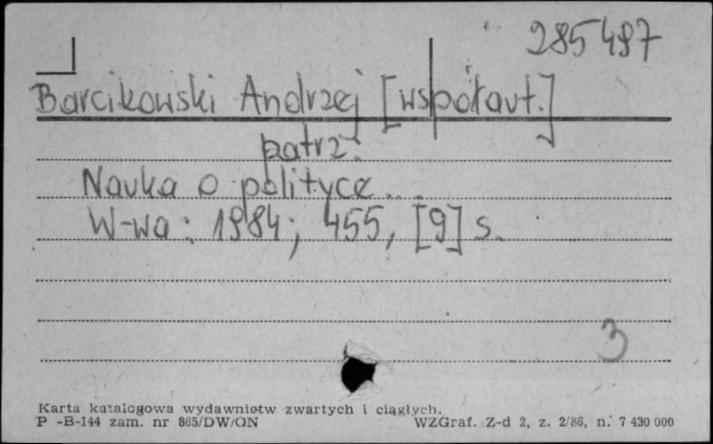 285487
Barcikowski Andrzej [współaut.]
patrz:
Nauka o polityce...
W-wa: 1984; 455, [9] s.
3
Karta katalogowa wydawnictw zwartych i ciągłych.
P -B-144 zam. nr 865/DW/ON WZGraf. Z-d 2, z. 2/86, n. 7 430 000